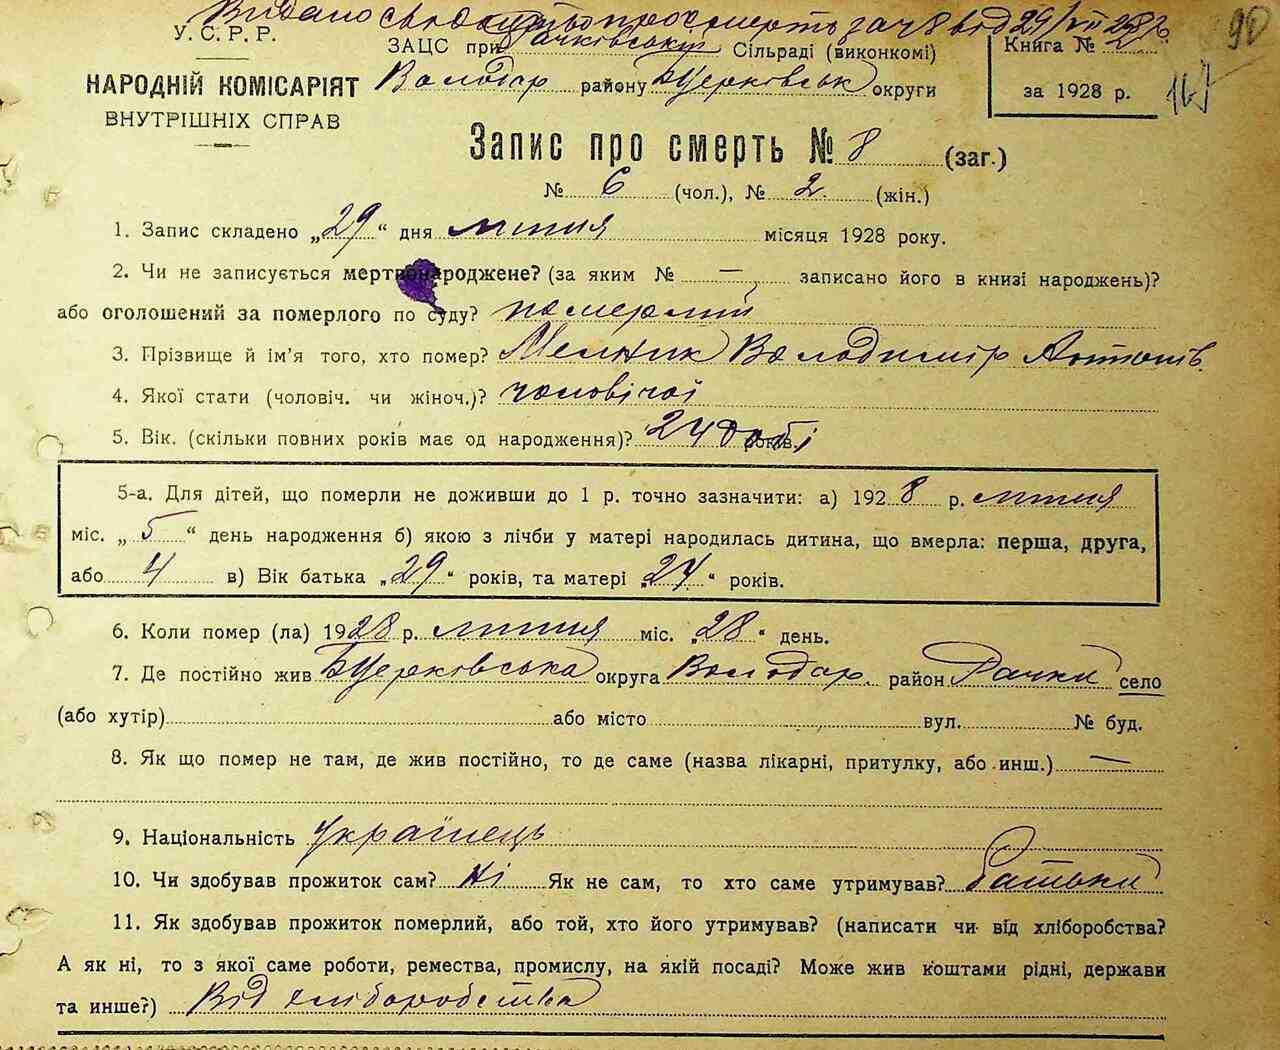 Видано свідоцтво про смерть за ч 8 від 29/VII 28 р
90
У.С.Р.Р.
НАРОДНІЙ КОМІСАРІЯТ
ВНУТРІШНІХ СПРАВ
ЗАЦС при Рачківській Сільраді (виконкомі)
Володар району БЦерківськ округи
Книга № 2
за 1928 р.
167
Запис про смерть № 8 (заг.)
№ 6 (чол.), № 2 (жін.)
1. Запис складено „29“ дня липня місяця 1928 року.
2. Чи не записується мертвонароджене? (за яким № — записано його в книзі народжень)?
або оголошений за померлого по суду? померлий
3. Прізвище й ім'я того, хто помер? Мельник Володимір Антонів
4. Якої стати (чоловіч. чи жіноч.)? чоловічої
5. Вік. (скільки повних років має од народження)? 24 добі років.
5-а. Для дітей, що померли не доживши до 1 р. точно зазначити: а) 1928 р. липня
міс. „5“ день народження б) якою з лічби у матері народилась дитина, що вмерла: перша, друга,
або 4 в) Вік батька „29“ років, та матері „24“ років.
6. Коли помер (ла) 1928 р. липня міс. „28“ день.
7. Де постійно жив БЦерківська округа Володар. район Рачки село
(або хутір) або місто вул. № буд.
8. Як що помер не там, де жив постійно, то де саме (назва лікарні, притулку, або инш.) —
9. Національність Українець
10. Чи здобував прожиток сам? Ні Як не сам, то хто саме утримував? Батьки
11. Як здобував прожиток померлий, або той, хто його утримував? (написати чи від хліборобства?
А як ні, то з якої саме роботи, ремества, промислу, на якій посаді? Може жив коштами рідні, держави
та инше?) Від хліборобства